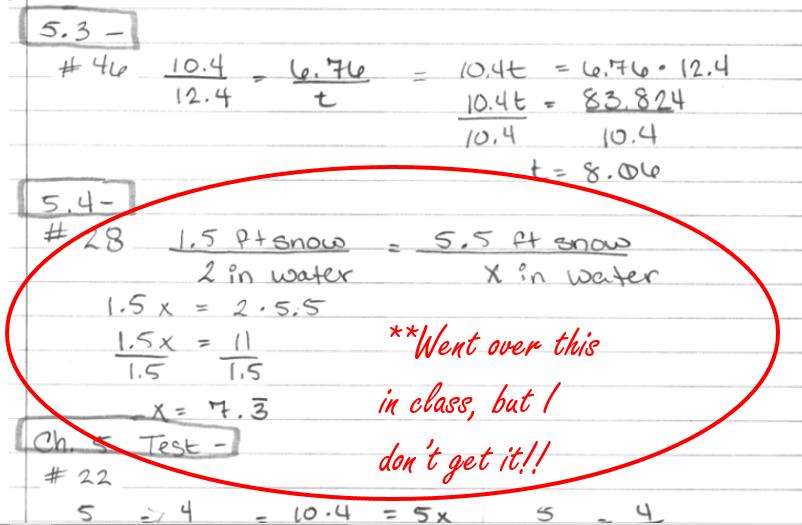 5.3 -
# 46 10.4/12.4 = 6.76/t = 10.4t = 6.76 · 12.4
10.4t/10.4 = 83.824/10.4
t = 8.06
5.4-
# 28 1.5 ft snow/2 in water = 5.5 ft snow/x in water
1.5 x = 2 · 5.5
1.5x/1.5 = 11/1.5
x = 7.3̅
**Went over this
in class, but I
don't get it!!
Ch. 5 Test -
# 22
5 = 4 = 10·4 = 5x 5 = 4